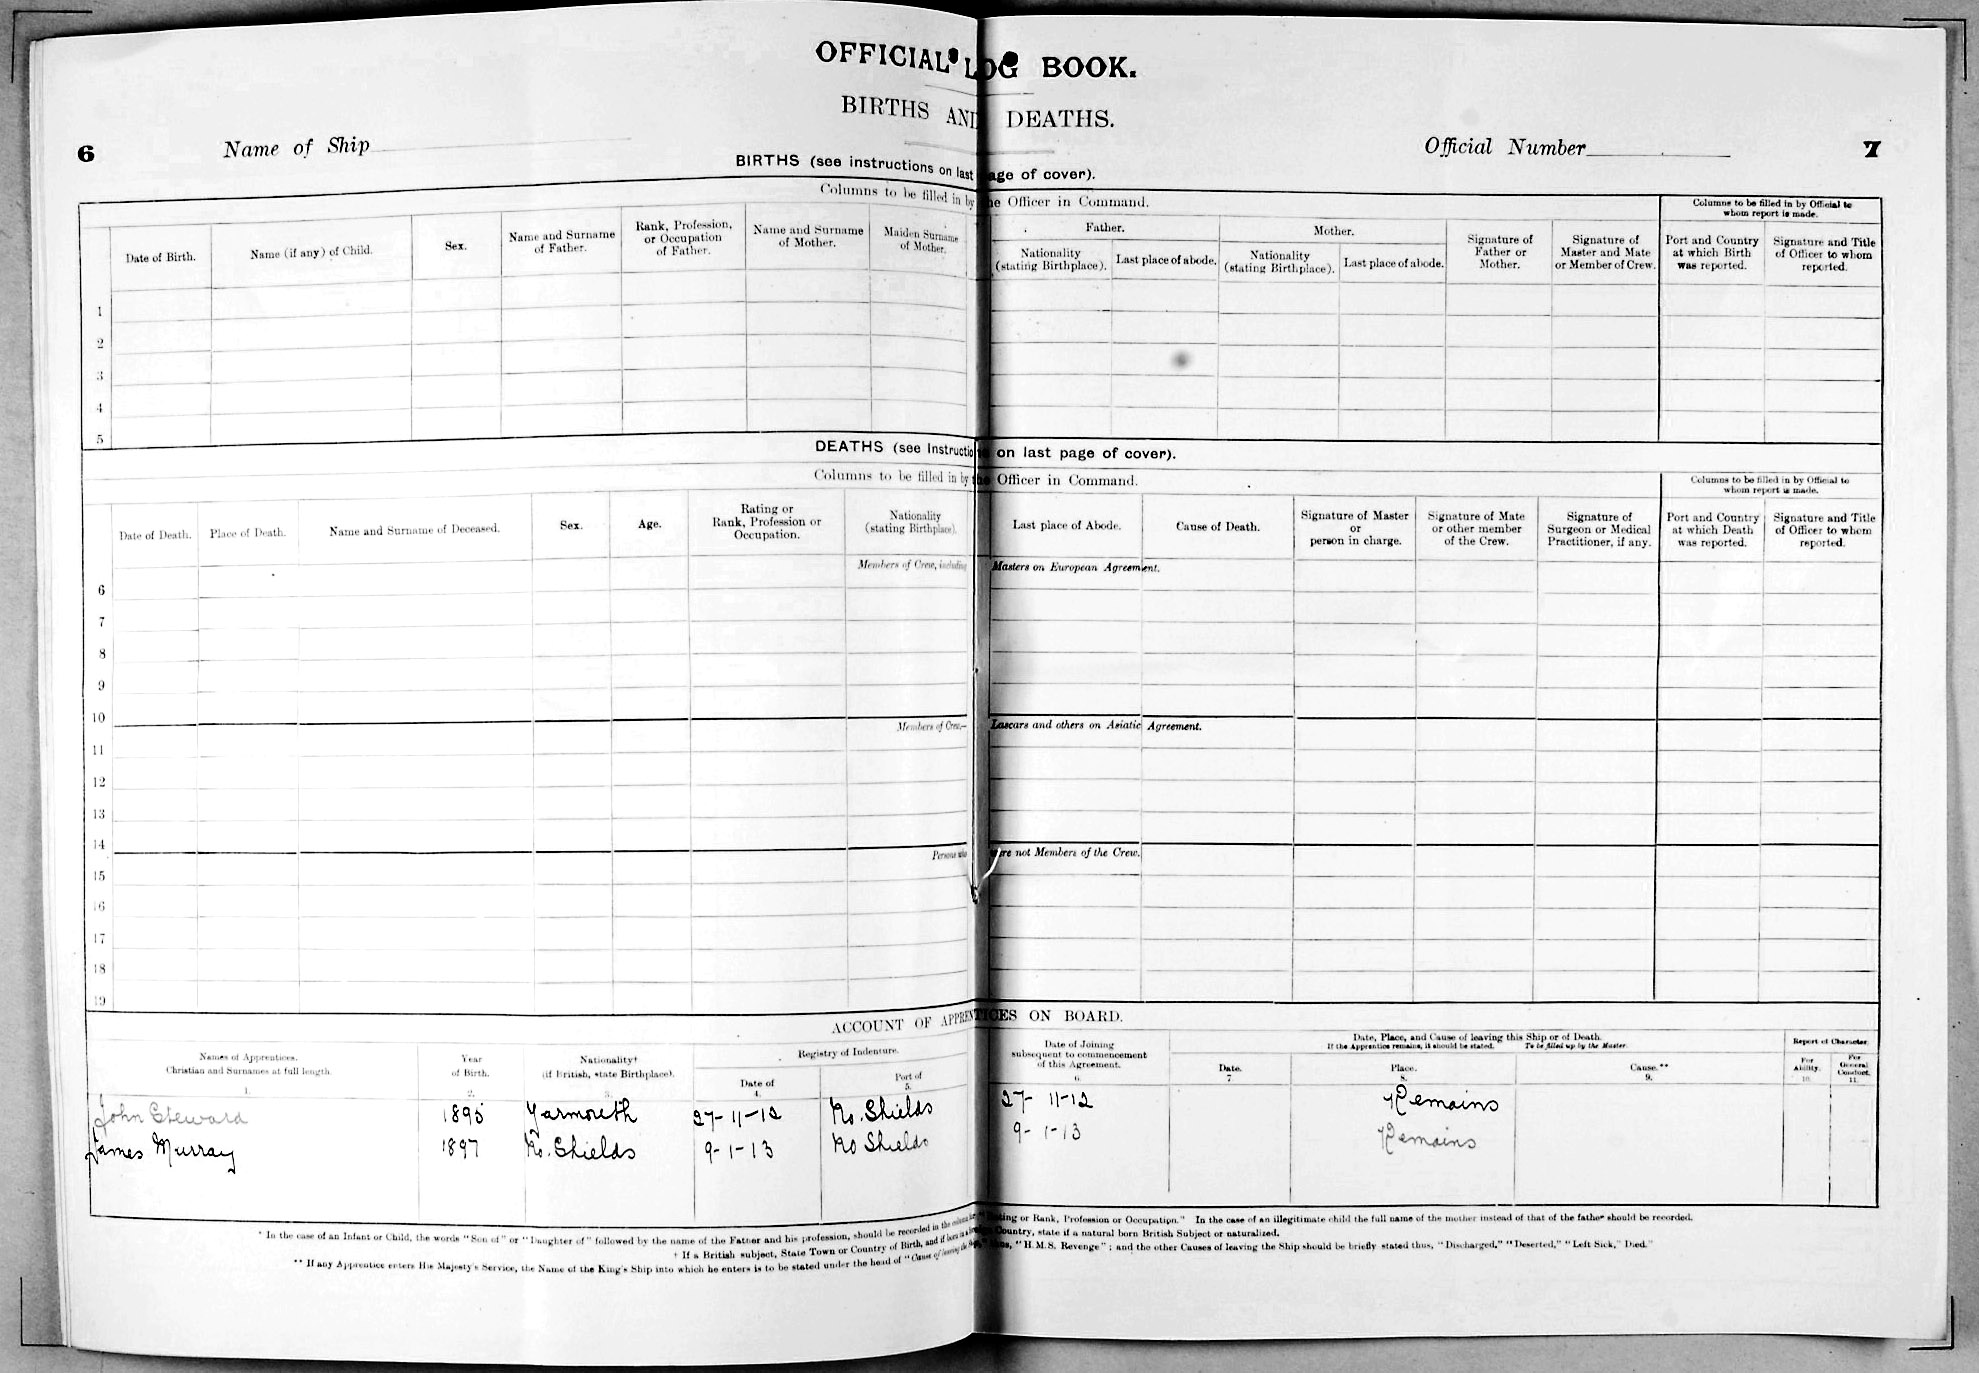 OFFICIAL LOG BOOK.
BIRTHS AND DEATHS.
6 Name of Ship Official Number 7
BIRTHS (see instructions on last page of cover).
Columns to be filled in by the Officer in Command.
Columns to be filled in by Official to whom report is made.
Date of Birth.
Name (if any) of Child.
Sex.
Name and Surname of Father.
Rank, Profession, or Occupation of Father.
Name and Surname of Mother.
Maiden Surname of Mother.
Father.
Nationality (stating Birthplace).
Last place of abode.
Mother.
Nationality (stating Birthplace).
Last place of abode.
Signature of Father or Mother.
Signature of Master and Mate or Member of Crew.
Port and Country at which Birth was reported.
Signature and Title of Officer to whom reported.
1
2
3
4
5
DEATHS (see Instructions on last page of cover).
Columns to be filled in by the Officer in Command.
Columns to be filled in by Official to whom report is made.
Date of Death.
Place of Death.
Name and Surname of Deceased.
Sex.
Age.
Rating or Rank, Profession or Occupation.
Nationality (stating Birthplace).
Last place of Abode.
Cause of Death.
Signature of Master or person in charge.
Signature of Mate or other member of the Crew.
Signature of Surgeon or Medical Practitioner, if any.
Port and Country at which Death was reported.
Signature and Title of Officer to whom reported.
Members of Crew, including Masters on European Agreement.
6
7
8
9
10
Members of Crew.— Lascars and others on Asiatic Agreement.
11
12
13
14
Persons who were not Members of the Crew.
15
16
17
18
19
ACCOUNT OF APPRENTICES ON BOARD.
Names of Apprentices. Christian and Surnames at full length. 1.
Year of Birth. 2.
Nationality† (if British, state Birthplace). 3.
Registry of Indenture.
Date of 4.
Port of 5.
Date of Joining subsequent to commencement of this Agreement. 6.
Date, Place, and Cause of leaving this Ship or of Death.
If the Apprentice remains, it should be stated. To be filled up by the Master.
Date. 7
Place. 8.
Cause.** 9.
Report of Character.
For Ability. 10.
For General Conduct. 11.
John Steward 1895 Yarmouth 27-11-12 No. Shields 27-11-12 Remains
James Murray 1897 No. Shields 9-1-13 No Shields 9-1-13 Remains
* In the case of an Infant or Child, the words "Son of" or "Daughter of" followed by the name of the Father and his profession, should be recorded in the column for "Rating or Rank, Profession or Occupation." In the case of an illegitimate child the full name of the mother instead of that of the father should be recorded.
† If a British subject, State Town or Country of Birth, and if born in a foreign Country, state if a natural born British Subject or naturalized.
** If any Apprentice enters His Majesty's Service, the Name of the King's Ship into which he enters is to be stated under the head of "Cause of leaving the Ship," thus, "H.M.S. Revenge"; and the other Causes of leaving the Ship should be briefly stated thus, "Discharged," "Deserted," "Left Sick," Died."